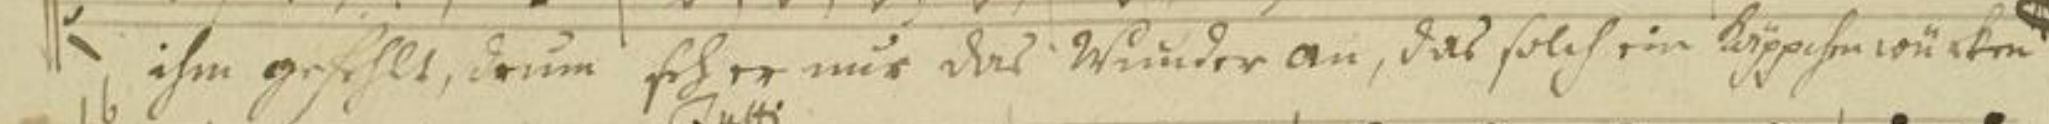 ihm gefehlt, drum seh er nur das Wunder an, das solch ein Käppchen würken
16
Tutti